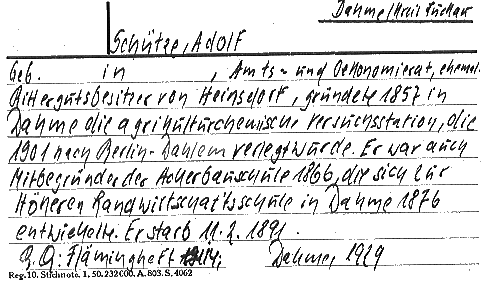 Dahme/Kreis Luckau
Schütze, Adolf
Geb. in , Amts- und Oekonomierat, ehemal.
Rittergutsbesitzer von Heinsdorf, gründete 1857 in
Dahme die agrikulturchemische Versuchsstation, die
1901 nach Berlin-Dahlem verlegt wurde. Er war auch
Mitbegründer der Ackerbauschule 1866, die sich zur
Höheren Landwirtschaftsschule in Dahme 1876
entwickelte. Er starb 11.2.1891.
Z.Q.: Flämingheft Dahme, 1929
Reg. 10. Stichnote. 1, 50. 232000. A. 803. S. 4062